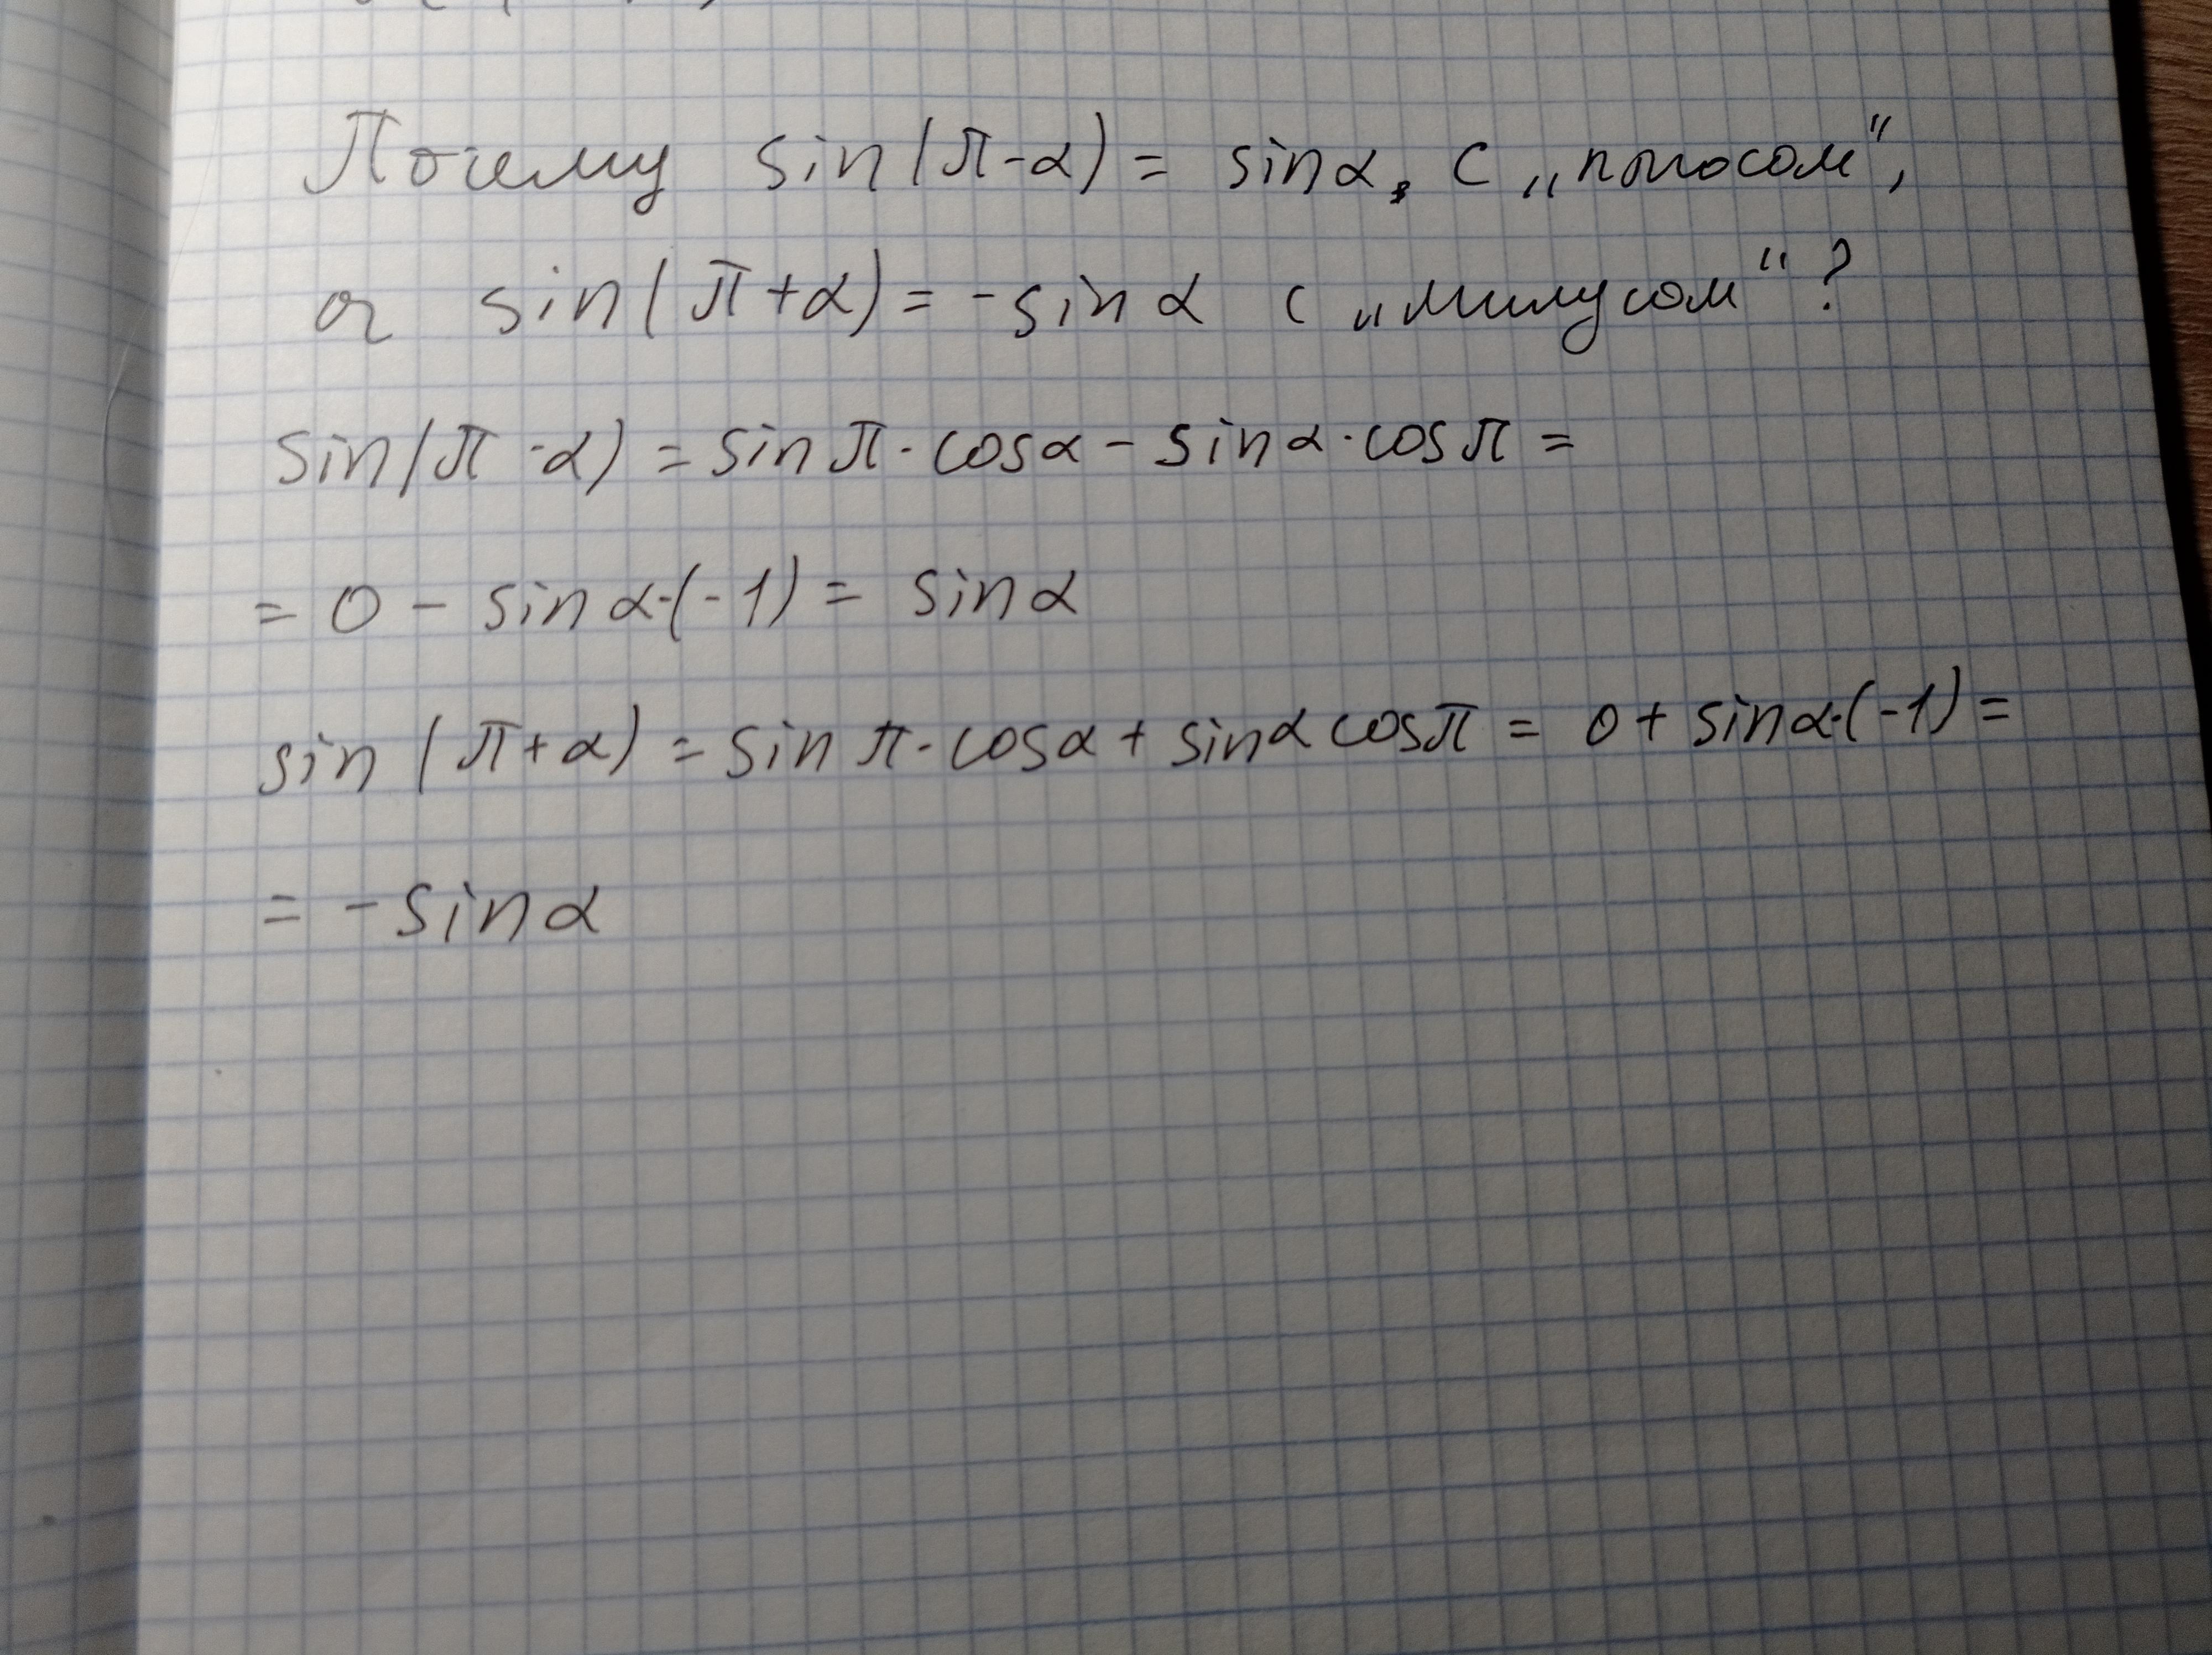 Почему sin(π-α) = sinα, с „плюсом“,
а sin(π+α) = -sinα с „минусом“?
sin(π-α) = sinπ·cosα - sinα·cosπ =
= 0 - sinα·(-1) = sinα
sin(π+α) = sinπ·cosα + sinα cosπ = 0 + sinα·(-1) =
= -sinα